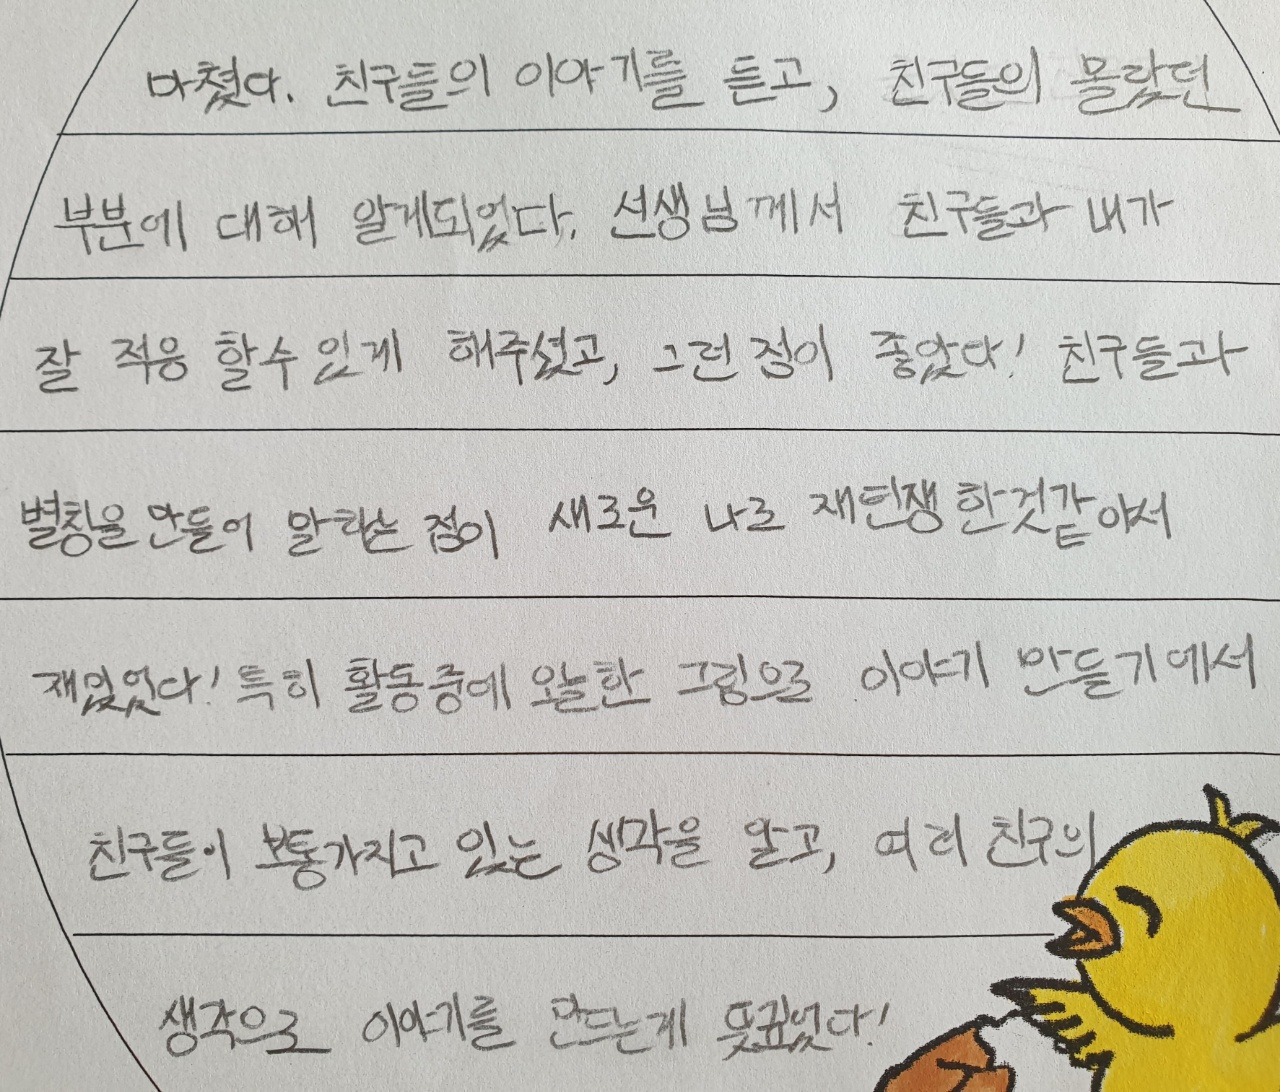 마쳤다. 친구들의 이야기를 듣고, 친구들의 몰랐던
부분에 대해 알게되었다. 선생님께서 친구들과 내가
잘 적응 할수 있게 해주셨고, 그런 점이 좋았다! 친구들과
별칭을 만들어 말하는 점이 새로운 나로 재탄생 한것같아서
재밌었다! 특히 활동중에 오늘한 그림으로 이야기 만들기에서
친구들이 보통가지고 있는 생각을 알고, 여러 친구의
생각으로 이야기를 만드는게 뜻깊었다!